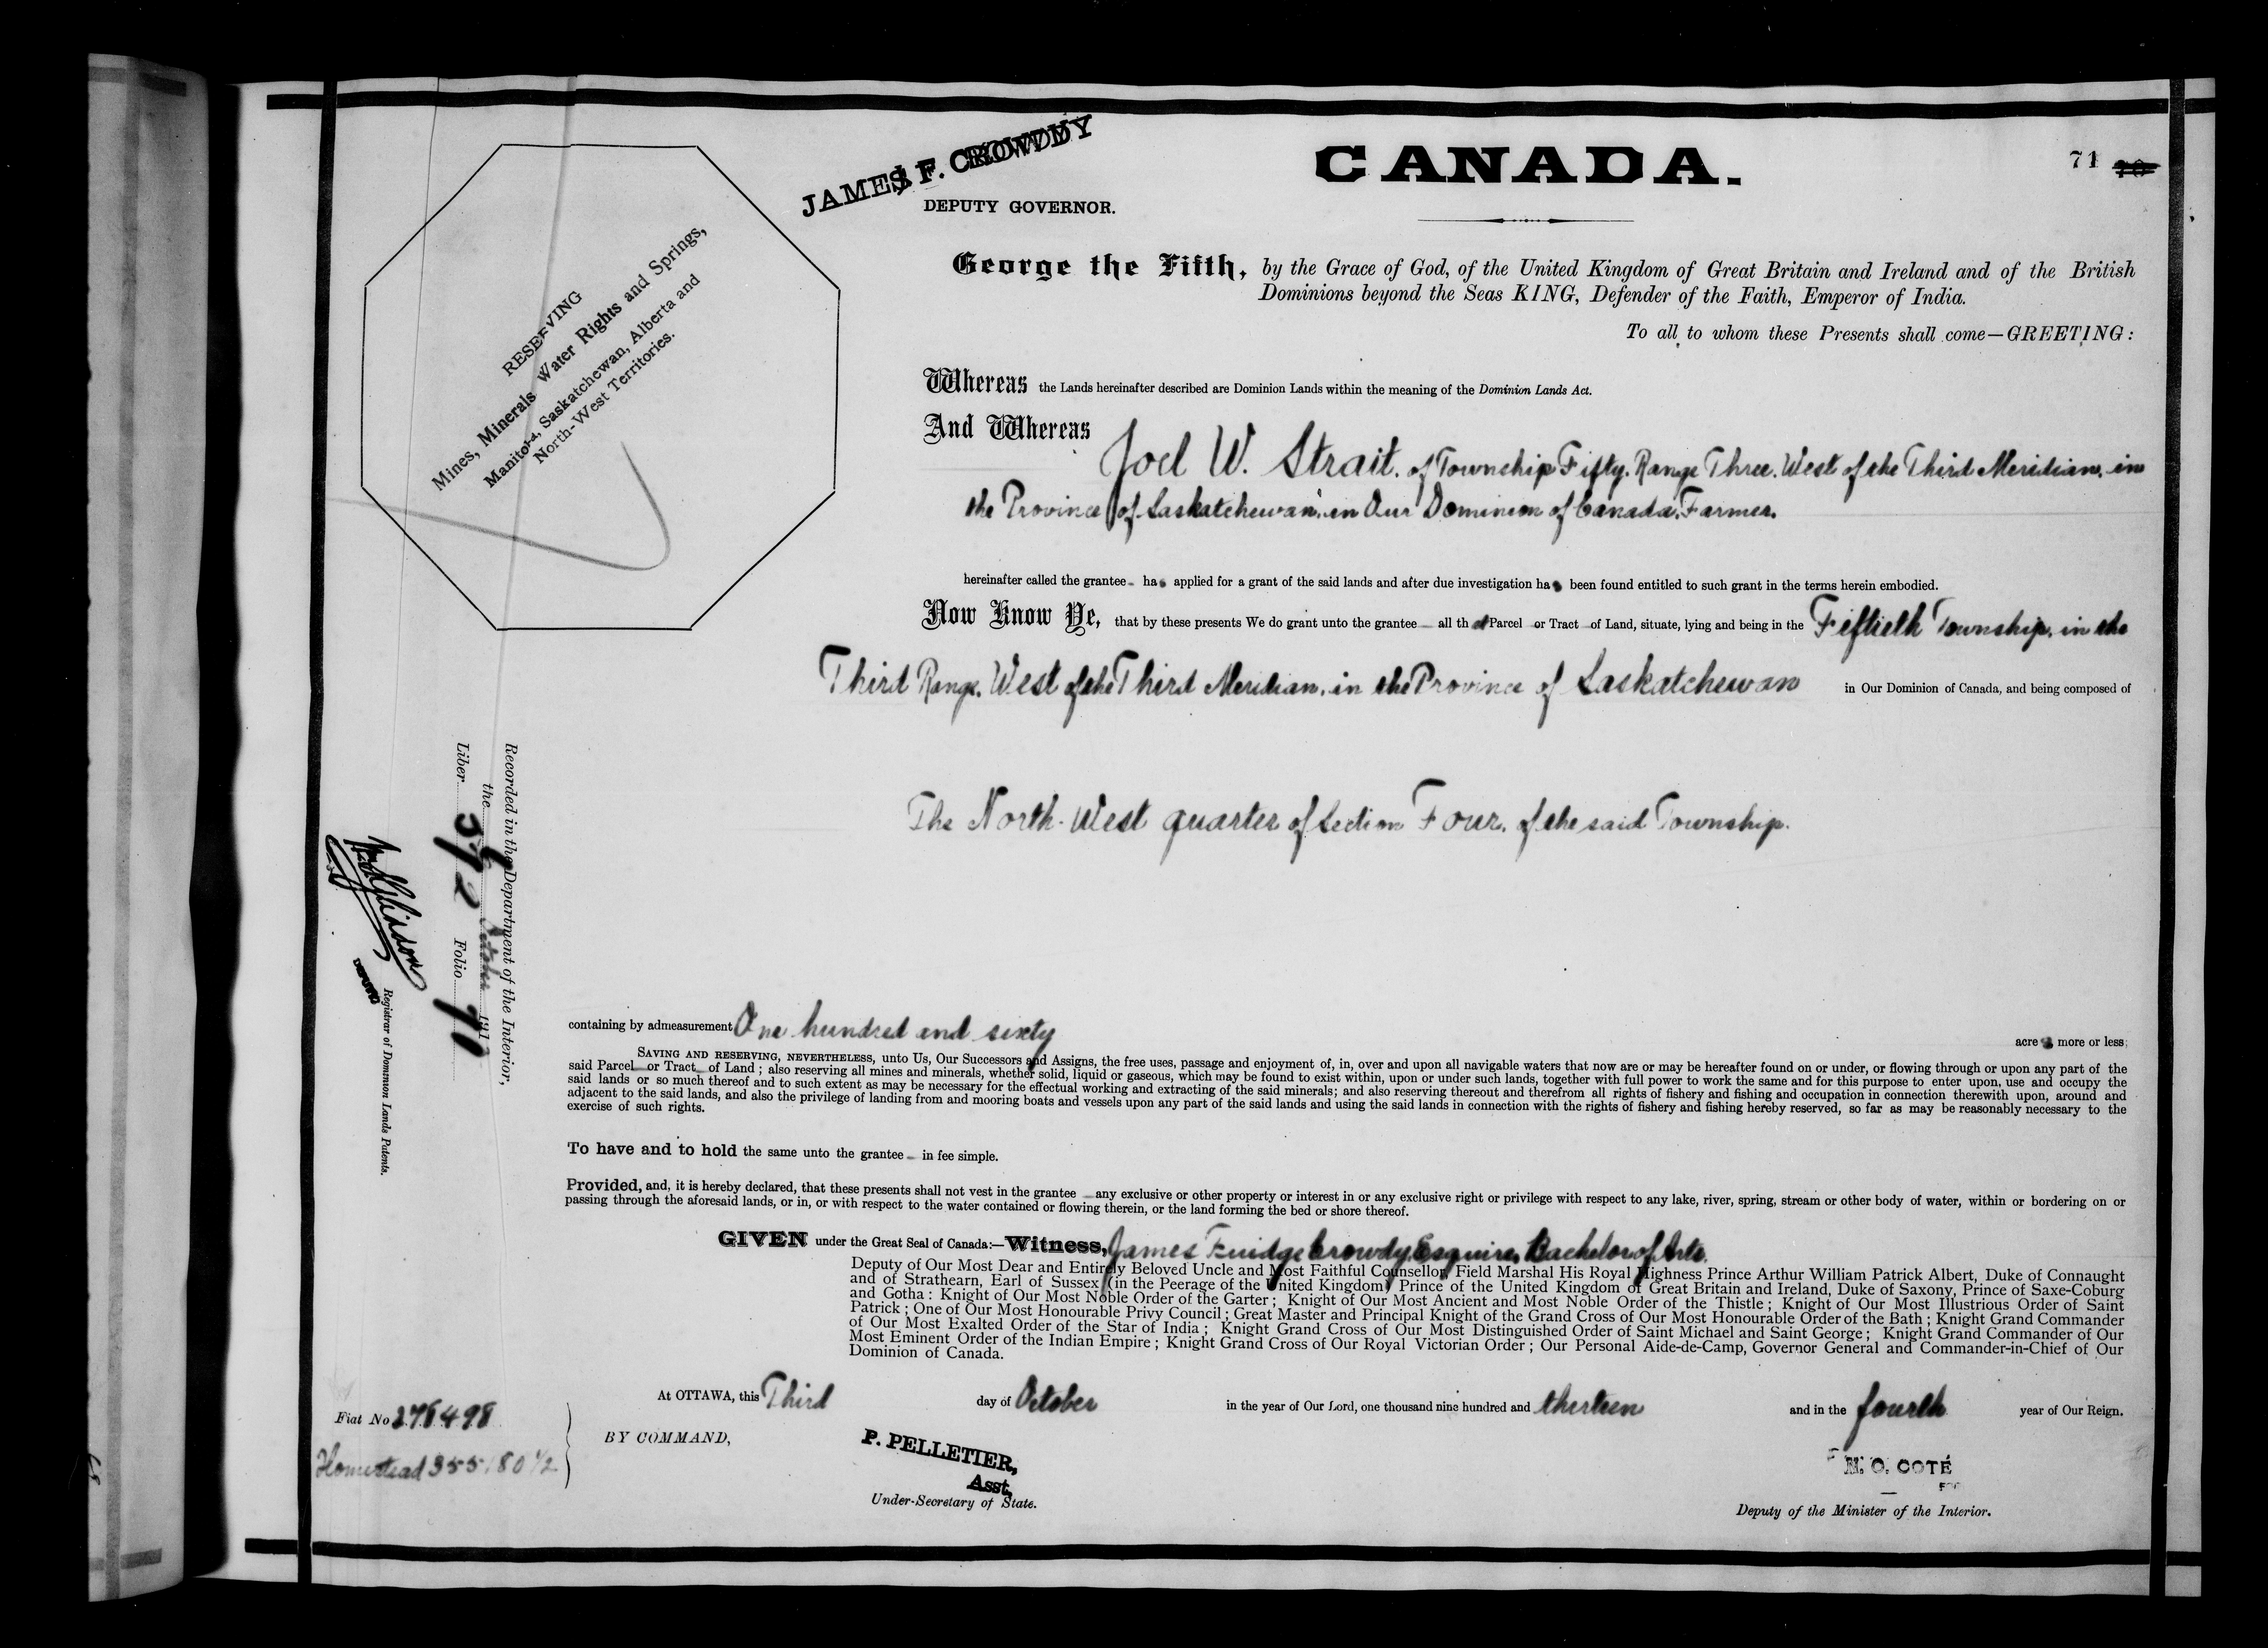 JAMES F. CROWDY
DEPUTY GOVERNOR.
CANADA.
71 70
RESERVING
Mines, Minerals Water Rights and Springs,
Manitoba, Saskatchewan, Alberta and
North-West Territories.
George the Fifth, by the Grace of God, of the United Kingdom of Great Britain and Ireland and of the British
Dominions beyond the Seas KING, Defender of the Faith, Emperor of India.
To all to whom these Presents shall come—GREETING:
Whereas the Lands hereinafter described are Dominion Lands within the meaning of the Dominion Lands Act.
And Whereas
Joel W. Strait. of Township Fifty. Range Three. West of the Third Meridian. in
the Province of Saskatchewan. in Our Dominion of Canada. Farmer.
hereinafter called the grantee has applied for a grant of the said lands and after due investigation has been found entitled to such grant in the terms herein embodied.
Now Know Ye, that by these presents We do grant unto the grantee all that Parcel or Tract of Land, situate, lying and being in the Fiftieth Township. in the
Third Range. West of the Third Meridian. in the Province of Saskatchewan in Our Dominion of Canada, and being composed of
The North-West quarter of Section Four. of the said Township.
containing by admeasurement One hundred and sixty acres more or less;
SAVING AND RESERVING, NEVERTHELESS, unto Us, Our Successors and Assigns, the free uses, passage and enjoyment of, in, over and upon all navigable waters that now are or may be hereafter found on or under, or flowing through or upon any part of the
said Parcel or Tract of Land; also reserving all mines and minerals, whether solid, liquid or gaseous, which may be found to exist within, upon or under such lands, together with full power to work the same and for this purpose to enter upon, use and occupy the
said lands or so much thereof and to such extent as may be necessary for the effectual working and extracting of the said minerals; and also reserving thereout and therefrom all rights of fishery and fishing and occupation in connection therewith upon, around and
adjacent to the said lands, and also the privilege of landing from and mooring boats and vessels upon any part of the said lands and using the said lands in connection with the rights of fishery and fishing hereby reserved, so far as may be reasonably necessary to the
exercise of such rights.
To have and to hold the same unto the grantee in fee simple.
Provided, and, it is hereby declared, that these presents shall not vest in the grantee any exclusive or other property or interest in or any exclusive right or privilege with respect to any lake, river, spring, stream or other body of water, within or bordering on or
passing through the aforesaid lands, or in, or with respect to the water contained or flowing therein, or the land forming the bed or shore thereof.
GIVEN under the Great Seal of Canada:—Witness, James Fuidge Crowdy, Esquire, Bachelor of Arts.
Deputy of Our Most Dear and Entirely Beloved Uncle and Most Faithful Counsellor, Field Marshal His Royal Highness Prince Arthur William Patrick Albert, Duke of Connaught
and of Strathearn, Earl of Sussex (in the Peerage of the United Kingdom) Prince of the United Kingdom of Great Britain and Ireland, Duke of Saxony, Prince of Saxe-Coburg
and Gotha: Knight of Our Most Noble Order of the Garter; Knight of Our Most Ancient and Most Noble Order of the Thistle; Knight of Our Most Illustrious Order of Saint
Patrick; One of Our Most Honourable Privy Council; Great Master and Principal Knight of the Grand Cross of Our Most Honourable Order of the Bath; Knight Grand Commander
of Our Most Exalted Order of the Star of India; Knight Grand Cross of Our Most Distinguished Order of Saint Michael and Saint George; Knight Grand Commander of Our
Most Eminent Order of the Indian Empire; Knight Grand Cross of Our Royal Victorian Order; Our Personal Aide-de-Camp, Governor General and Commander-in-Chief of Our
Dominion of Canada.
At OTTAWA, this Third day of October in the year of Our Lord, one thousand nine hundred and thirteen and in the fourth year of Our Reign.
BY COMMAND,
P. PELLETIER,
Asst.
Under-Secretary of State.
N. O. COTÉ
FOR
Deputy of the Minister of the Interior.
Fiat No 276498
Homestead 355180 1/2
Recorded in the Department of the Interior,
the October 191
Liber 572 Folio 70
Registrar of Dominion Lands Patents.